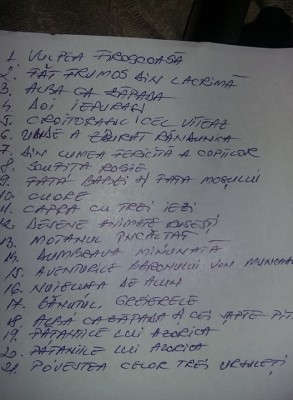 1. VULPEA FIROSCOASĂ
2. FĂT FRUMOS DIN LACRIMĂ
3. ALBA CA ZĂPADA
4. DOI IEPURAȘI
5. CROITORAȘUL CEL VITEAZ
6. UNDE A ZBURAT RÂNDUNICA
7. DIN LUMEA FERICITĂ A COPIILOR
8. SCUFIȚA ROȘIE
9. FATA BABEI ȘI FATA MOȘULUI
10. CUORE
11. CAPRA CU TREI IEZI
12. DESENE ANIMATE RUSEȘTI
13. MOTANUL ÎNCĂLȚAT
14. DUMBRAVA MINUNATĂ
15. AVENTURILE BARONULUI VON MUNCHAU
16. NUIELUȘA DE ALUN
17. BĂNUȚUL GREȘERELE
18. ALBĂ CA ZĂPADA ȘI CEI ȘAPTE PIT
19. PĂȚANIILE LUI AZORICĂ
20. PĂȚANIILE LUI AZORICĂ
21. POVESTEA CELOR TREI URSULEȚI